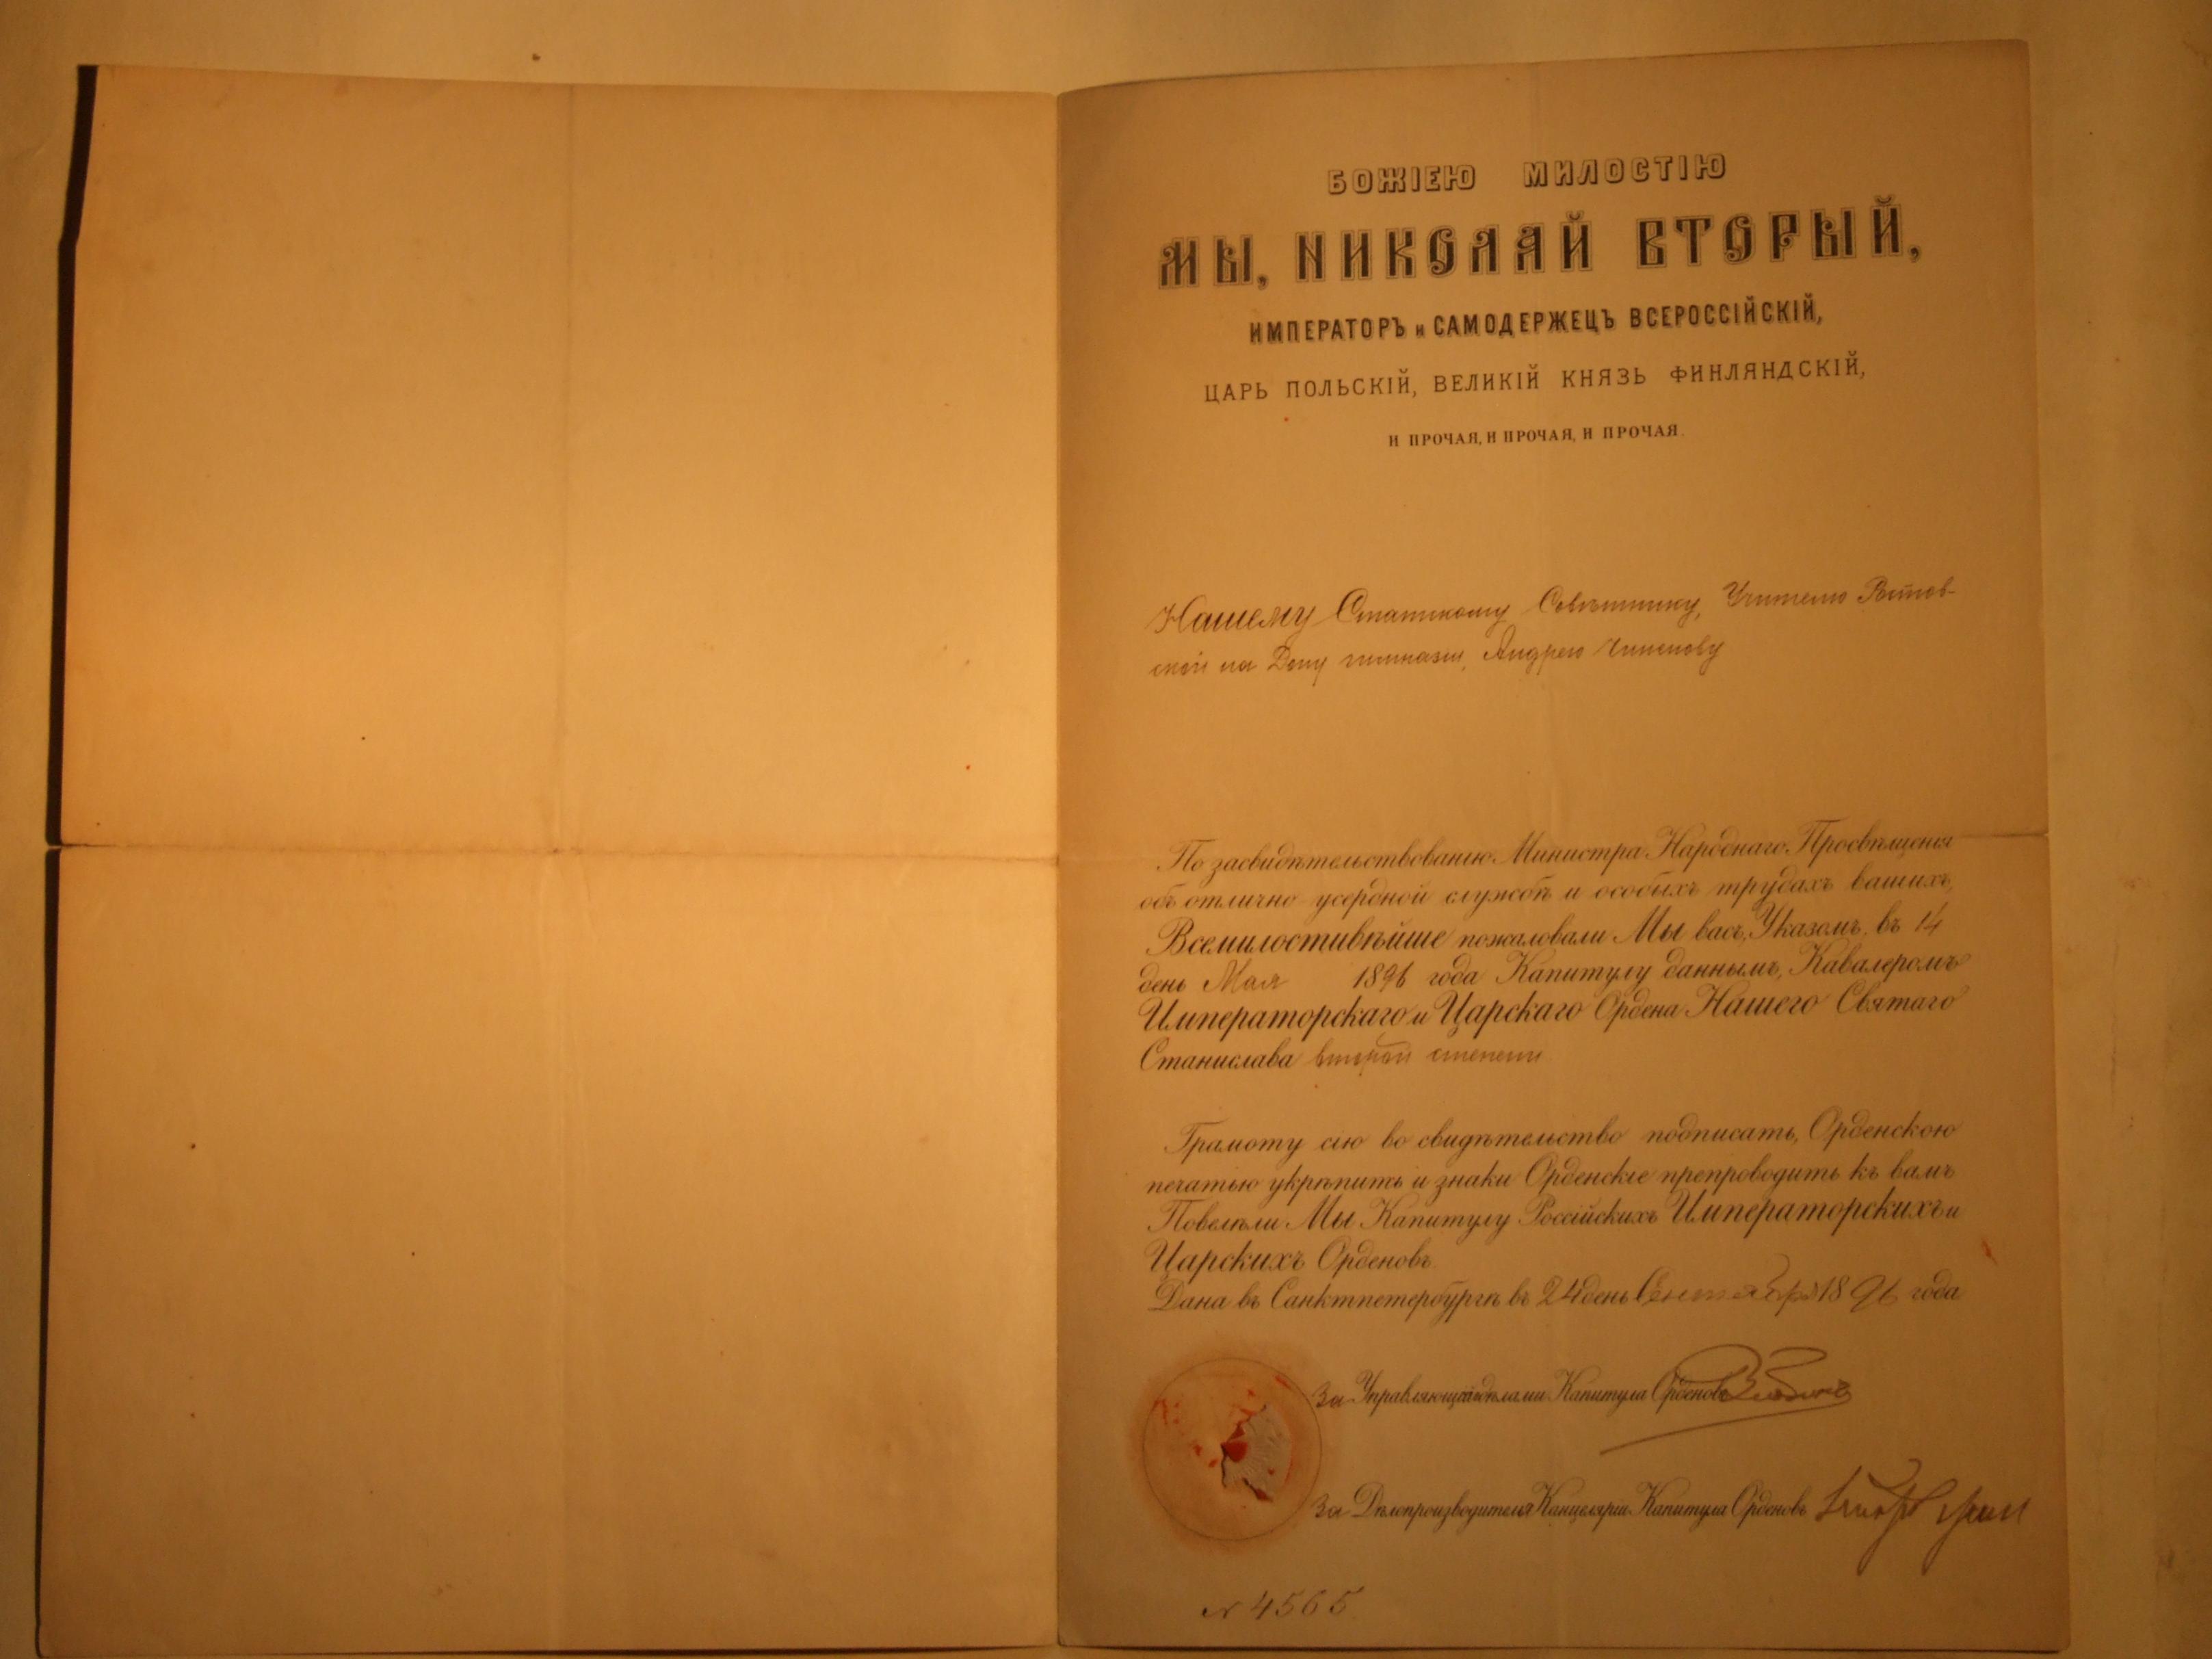 БОЖІЕЮ МИЛОСТІЮ
МЫ, НИКОЛАЙ ВТОРЫЙ,
ИМПЕРАТОРЪ и САМОДЕРЖЕЦЪ ВСЕРОССІЙСКІЙ,
ЦАРЬ ПОЛЬСКІЙ, ВЕЛИКІЙ КНЯЗЬ ФИНЛЯНДСКІЙ,
И ПРОЧАЯ, И ПРОЧАЯ, И ПРОЧАЯ.
Нашему Статскому Совѣтнику, Учителю Ростов-
ской на Дону гимназіи, Андрею
По засвидѣтельствованію Министра Народнаго Просвѣщенія
объ отлично усердной службѣ и особыхъ трудахъ вашихъ,
Всемилостивѣйше пожаловали Мы васъ, Указомъ, въ 14
день Мая 1896 года Капитулу даннымъ, Кавалеромъ
Императорскаго и Царскаго Ордена Нашего Святаго
Станислава второй степени
Грамоту сію во свидѣтельство подписать, Орденскою
печатью укрѣпить и знаки Орденскіе препроводить къ вамъ
Повелѣли Мы Капитулу Россійскихъ Императорскихъ и
Царскихъ Орденовъ.
Дана въ Санктпетербургѣ въ 24 день Сентября 1896 года
За Управляющаго дѣлами Капитула Орденовъ
За Дѣлопроизводителя Канцеляріи Капитула Орденовъ
№ 4565